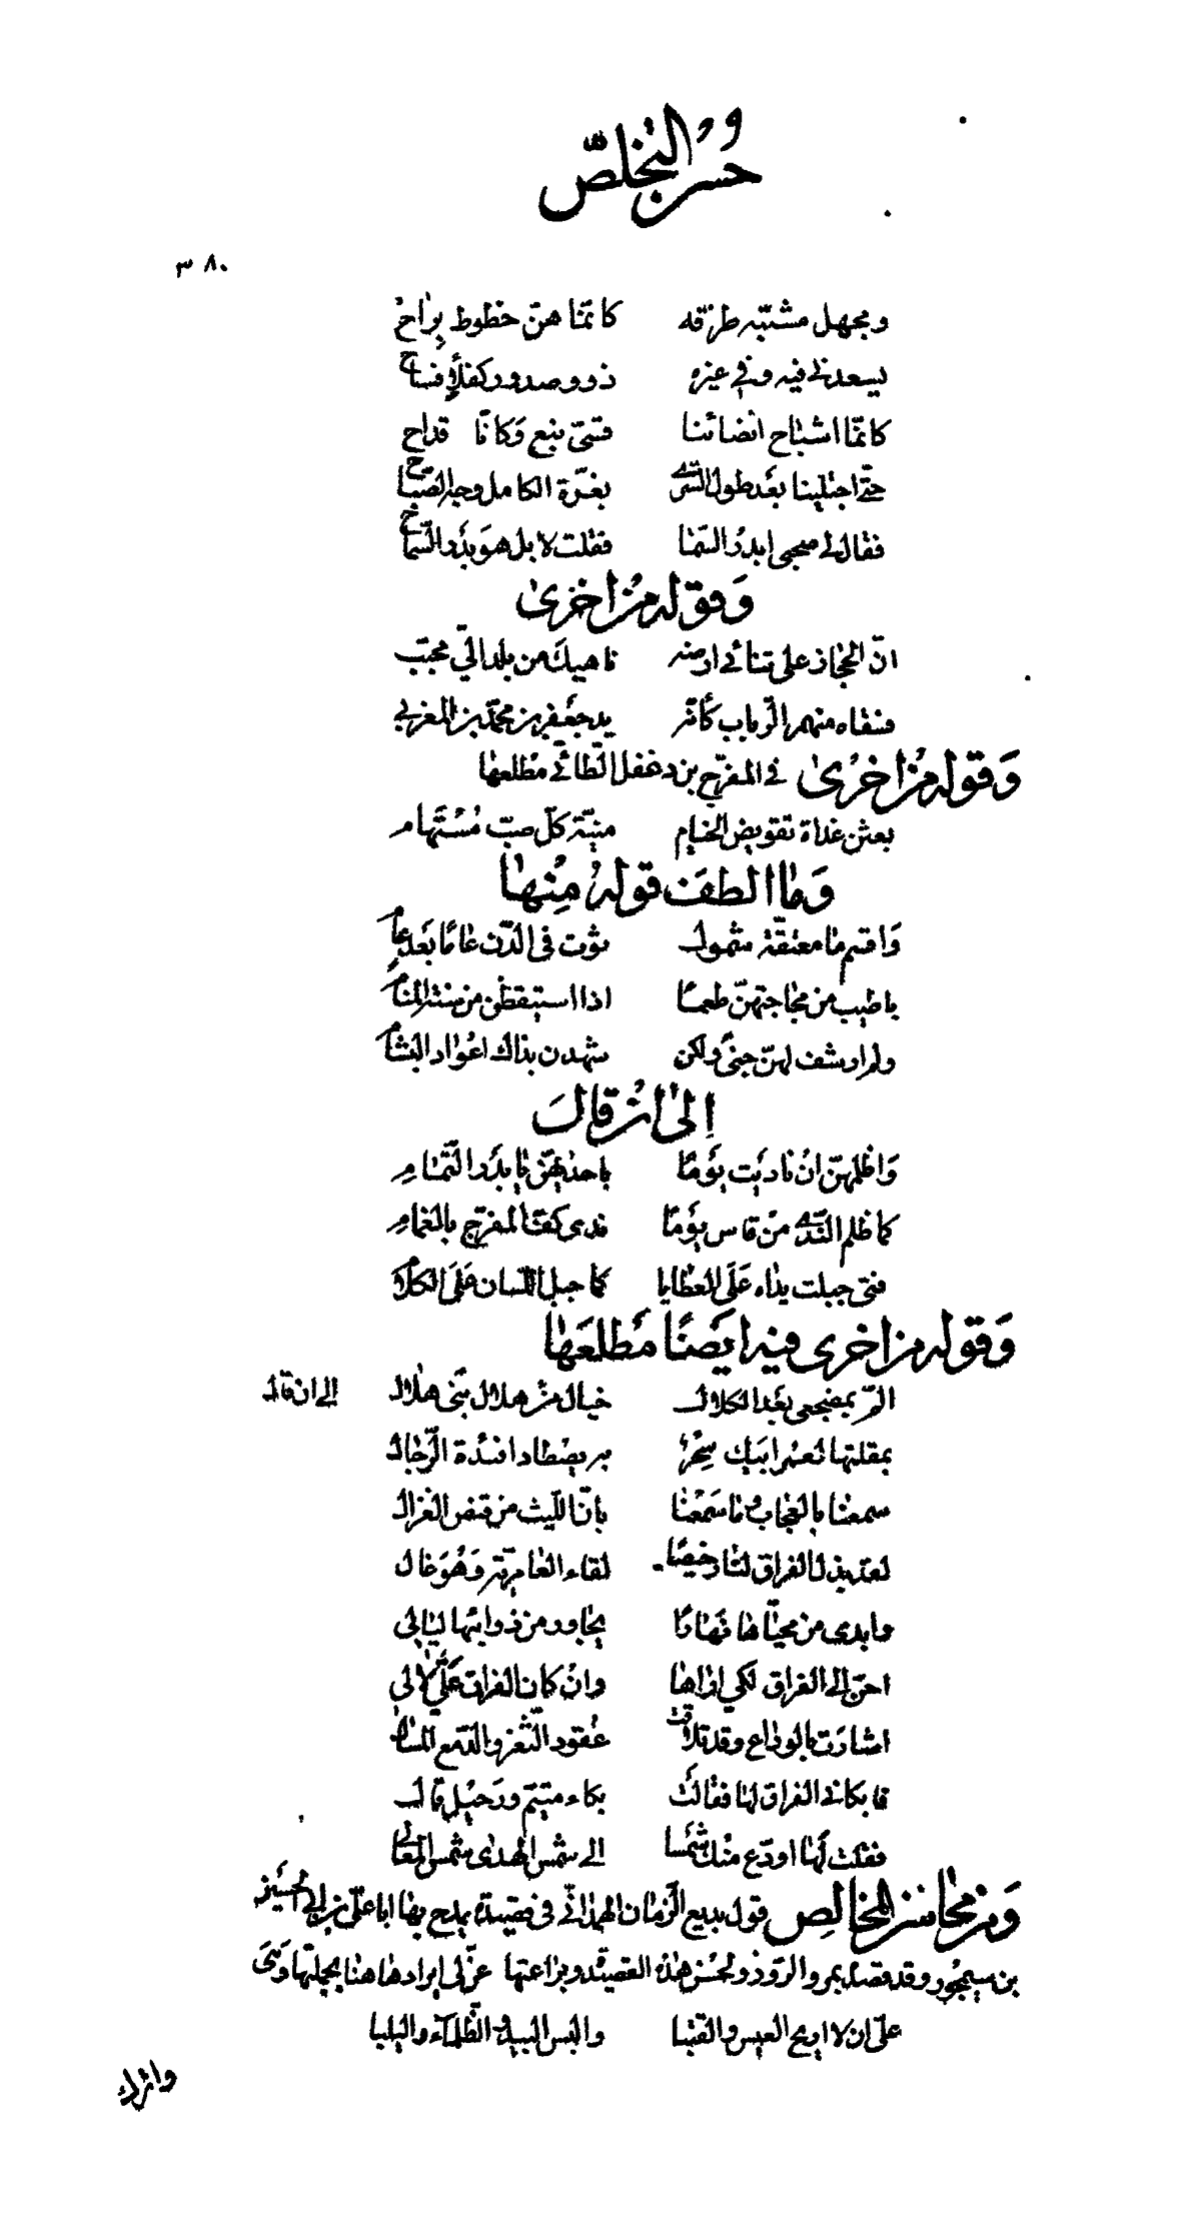 حسن التخلص
٣٨٠
ومجهل مشتبه طرقه كانما هن خطوط براح
يسعدني فيه وفي غيره ذو وصدور كفلا
كانما اشباح انضائنا قسى نبع وكانا قداح
حتى اجتلينا بعد طول السرى بغرة الكامل وجه الصباح
فقال لى صحبى ابدر السما فقلت لا بل هو بدر السماح
وقوله من اخرى
ان الحجاز على تنائى ارضه ناهيك من بلد الىّ محبّب
فسقاه منهمر الرباب كأنّه يد جعفر بن محمّد بن المغربى
وقوله من اخرى فى المفرّج بن دغفل الطّائى مطلعها
بعثن غداة تقويض الخيام منيّة كلّ صبّ مستهام
وما الطف قوله منها
واقسم ما معتقة شمول ثوت فى الدّن عاما بعد عام
باطيب من مجاجتهنّ طعما اذا استيقظن من سنة المنام
ولم ارشف لهنّ جنى ولكن شهدن بذاك اعواد البشام
الى ان قال
واظلمهنّ ان ناديت يوما باحداهنّ يا بدر التّمام
كما ظلم النّدى من قاس يوما ندى كفّ المفرّج بالغمام
فتى جبلت يداه على العطايا كما جبل اللسان على الكلام
وقوله من اخرى فيه ايضا مطلعها
المّ بمضجعى بعد الكلال خيال من هلال بنى هلال الى ان قال
بمقلتها لعمر ابيك سحر به يصطاد افئدة الرّجال
سمعنا بالعجاب وما سمعنا بانّ اللّيث من قنص الغزال
لعد يذل الفراق لنا رخيصا لقاء العامريّة وهو غال
وابدى من محيّاها نهارا يجاور من ذوابتها ليالى
احنّ الى الفراق لكى اراها وان كان الفراق علىّ لا لى
اشارت بالوداع وقد تلاقت عقود الثّغر والدّمع المسال
فابكانى الفراق لها فقالت بكاء متيّم ورحيل قال
فقلت لها اودّع منك شمسا الى شمس الهدى شمس المعالى
ومن محاسن المخالص قول بديع الزّمان الهمذانى فى قصيدة يمدح بها ابا على بن ابى الحسين
بن سيمجور وقد قصده بمرو الرّوذ ولحسن هذه القصيده وبراعتها عنّ لى ايرادها هنا بجملتها وهى
علىّ ان لا اريح العيس والقتبا والبس البيد والظّلماء واليلبا
واترك